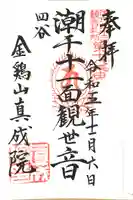 奉拝
令和五年十一月六日
潮干十一面観世音
四谷
金鶏山真成院